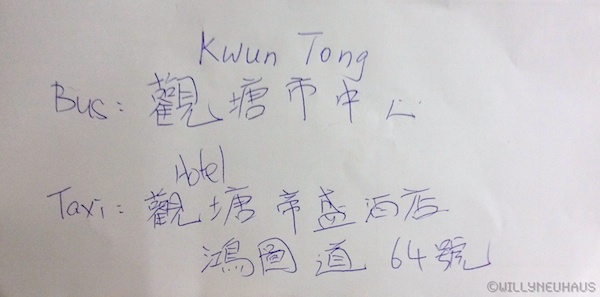 Kwun Tong
Bus: 觀塘市中心
Hotel
Taxi: 觀塘帝盛酒店
鴻圖道 64號
©WILLYNEUHAUS